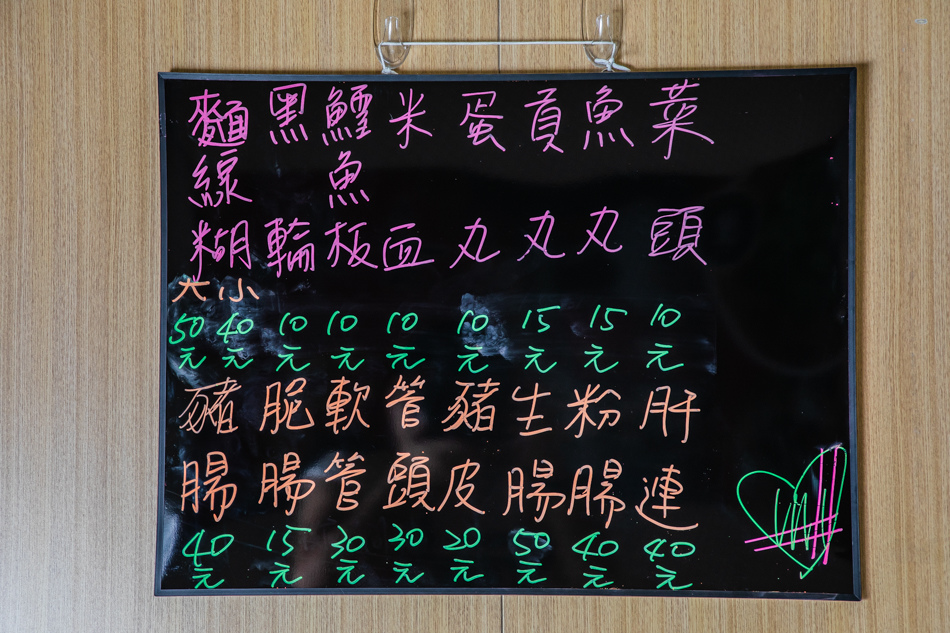 麵線糊 大 50元 小 40元
黑輪 10元
鱈魚板 10元
米血 10元
蛋丸 10元
貢丸 15元
魚丸 15元
菜頭 10元
豬腸 40元
脆腸 15元
軟管 30元
管頭 30元
豬皮 20元
生腸 50元
粉腸 40元
肝連 40元